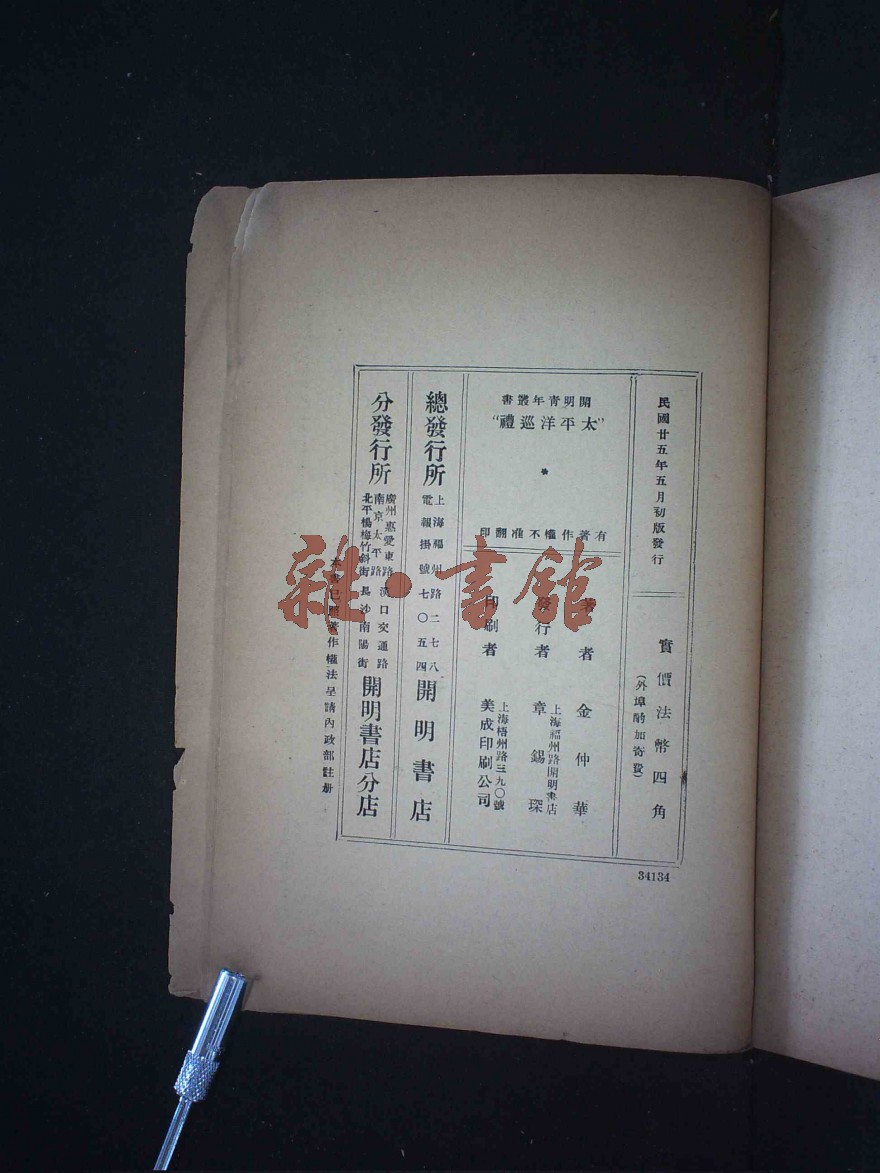 民國廿五年五月初版發行
實價法幣四角
(外埠酌加寄費)
開明青年叢書
“太平洋巡禮”
有著作權不准翻印
著者 金仲華
發行者 章錫琛
上海福州路開明書店
印刷者 美成印刷公司
上海梧州路三九〇號
總發行所 上海福州路二七八 電報掛號七〇五四 開明書店
分發行所
廣州惠愛東路 漢口交通路
南京太平路
北平楊梅竹斜街 長沙南陽街
開明書店分店
本書已照著作權法呈請內政部註冊
34134
雜·書館